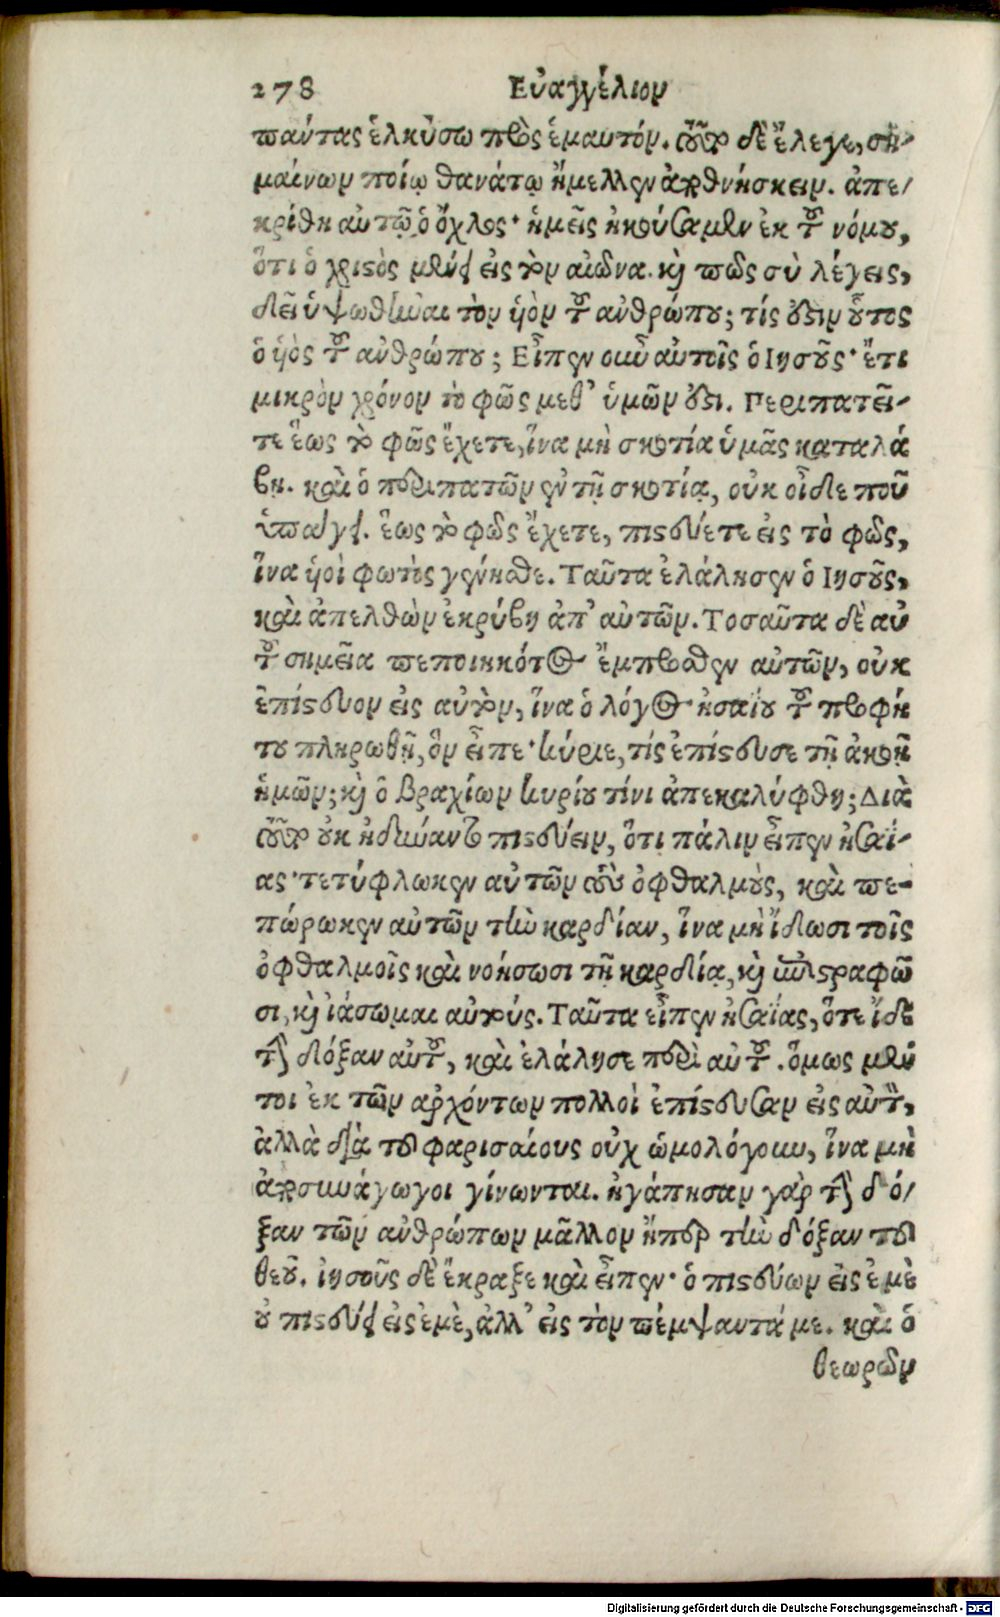 278 Εὐαγγέλιον
πάντας ἑλκύσω πρὸς ἐμαυτόν. τοῦτο δὲ ἔλεγε, ση-
μαίνων ποίῳ θανάτῳ ἤμελλεν ἀποθνήσκειν. ἀπε/
κρίθη αὐτῷ ὁ ὄχλος· ἡμεῖς ἠκούσαμεν ἐκ τοῦ νόμου,
ὅτι ὁ χριστὸς μένει εἰς τὸν αἰῶνα. καὶ πῶς σὺ λέγεις,
δεῖ ὑψωθῆναι τὸν υἱὸν τοῦ ἀνθρώπου; τίς ἐστιν οὗτος
ὁ υἱὸς τοῦ ἀνθρώπου; Εἶπεν οὖν αὐτοῖς ὁ Ιησοῦς· ἔτι
μικρὸν χρόνον τὸ φῶς μεθ' ὑμῶν ἐστι. Περιπατεῖ-
τε ἕως τὸ φῶς ἔχετε, ἵνα μὴ σκοτία ὑμᾶς καταλά
βῃ. καὶ ὁ περιπατῶν ἐν τῇ σκοτίᾳ, οὐκ οἶδε ποῦ
ὑπάγει. ἕως τὸ φῶς ἔχετε, πιστεύετε εἰς τὸ φῶς,
ἵνα υἱοὶ φωτὸς γένησθε. Ταῦτα ἐλάλησεν ὁ Ιησοῦς,
καὶ ἀπελθὼν ἐκρύβη ἀπ' αὐτῶν. Τοσαῦτα δὲ αὐ
τοῦ σημεῖα πεποιηκότος ἔμπροσθεν αὐτῶν, οὐκ
ἐπίστευον εἰς αὐτὸν, ἵνα ὁ λόγος ἠσαΐου τοῦ προφή
του πληρωθῇ, ὃν εἶπε· κύριε, τίς ἐπίστευσε τῇ ἀκοῇ
ἡμῶν; καὶ ὁ βραχίων κυρίου τίνι ἀπεκαλύφθη; Διὰ
τοῦτο οὐκ ἠδύναντο πιστεύειν, ὅτι πάλιν εἶπεν ἠσαΐ-
ας· τετύφλωκεν αὐτῶν τοὺς ὀφθαλμοὺς, καὶ πε-
πώρωκεν αὐτῶν τὴν καρδίαν, ἵνα μὴ ἴδωσι τοῖς
ὀφθαλμοῖς καὶ νοήσωσι τῇ καρδίᾳ, καὶ ἐπιστραφῶ
σι, καὶ ἰάσωμαι αὐτούς. Ταῦτα εἶπεν ἠσαΐας, ὅτε ἴδε
τὴν δόξαν αὐτοῦ, καὶ ἐλάλησε περὶ αὐτοῦ. ὅμως μέν
τοι ἐκ τῶν ἀρχόντων πολλοὶ ἐπίστευσαν εἰς αὐτὸν,
ἀλλὰ διὰ τοὺς φαρισαίους οὐχ ὡμολόγουν, ἵνα μὴ
ἀποσυνάγωγοι γίνωνται. ἠγάπησαν γὰρ τὴν δό/
ξαν τῶν ἀνθρώπων μᾶλλον ἤπερ τὴν δόξαν τοῦ
θεοῦ. ἰησοῦς δὲ ἔκραξε καὶ εἶπεν· ὁ πιστεύων εἰς ἐμὲ
οὐ πιστεύει εἰς ἐμὲ, ἀλλ' εἰς τὸν πέμψαντά με. καὶ ὁ
θεωρῶν
Digitalisierung gefördert durch die Deutsche Forschungsgemeinschaft - DFG